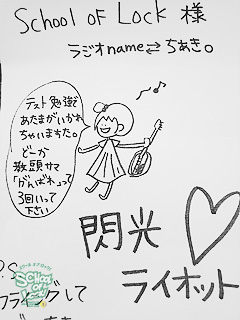 School of Lock 様
ラジオname⇄ ちあき。
テスト勉強で
あたまがいかれ
ちゃいますた。
どーか
教頭サマ
「がんばれ」って
3回いって
下さい
閃光
ライオット
P.S
フライングして